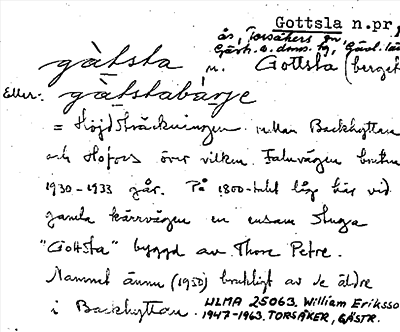 Gottsla n.pr.
ås, Torsåkers sn,
Gästr. ö. doms. tg, Gävl. lä
gàtsta n. Gottsta (berget
Eller: gàtstabárje
= Höjdsträckningen mellan Backhyttan
och Hofors över vilken Faluvägen bruten
1930-1933 går. På 1800-talet låg här vid
gamla kärrvägen en ensam stuga
"Gottsta" byggd av Thore Petre.
Namnet ännu (1950) brukligt av de äldre
i Backhyttan. ULMA 25063. William Eriksso
1947-1963. TORSÅKER, GÄSTR.